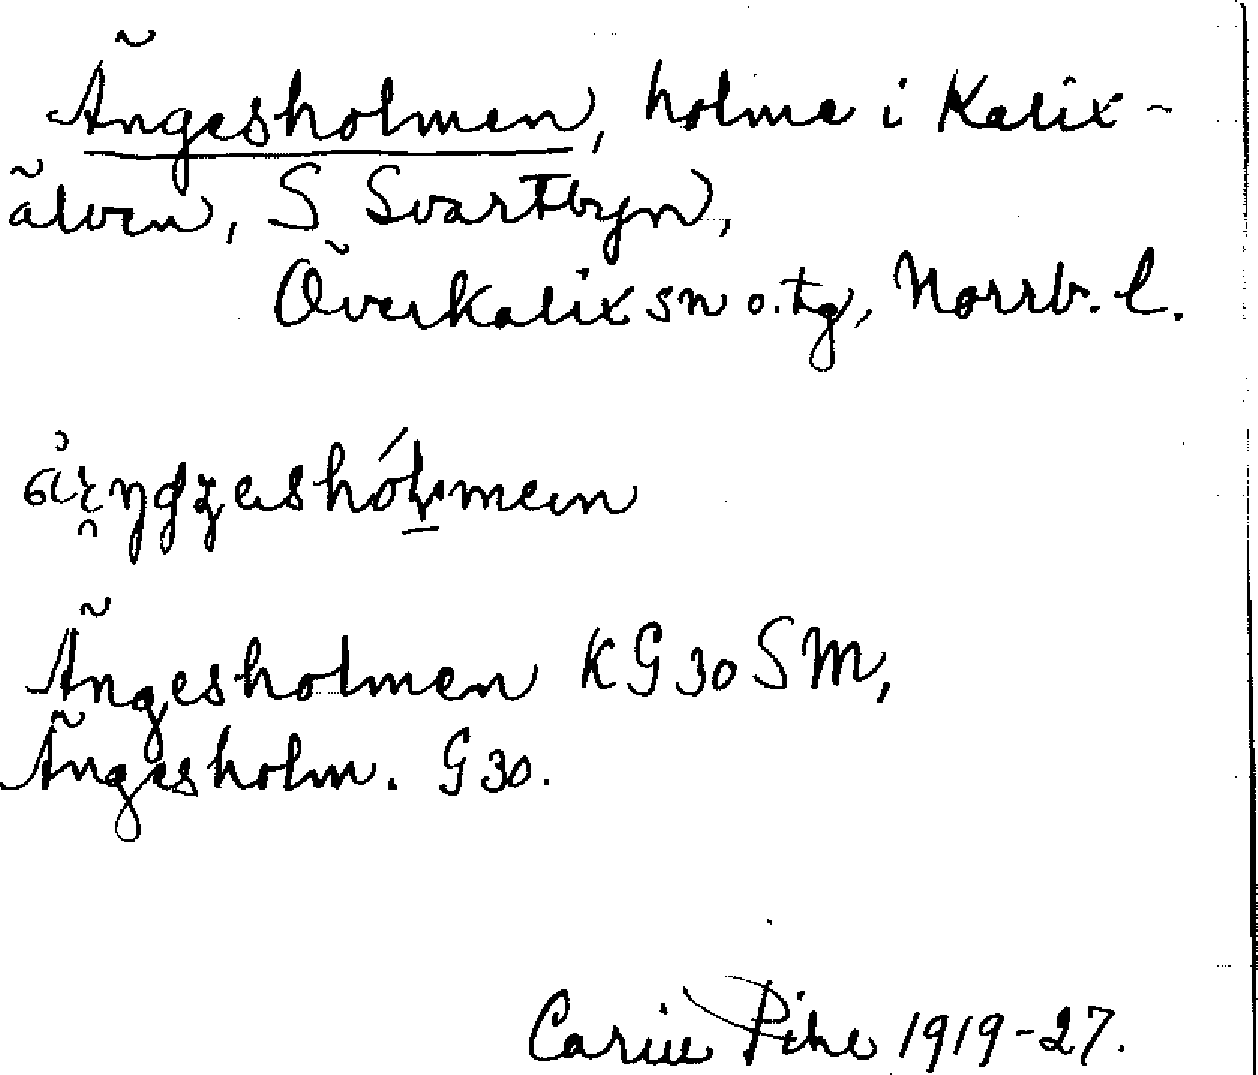 Ängesholmen, holme i Kalix-
älven, S Svartbyn,
Överkalix sn o. tg, Norrb. l.
Ängesholmen KG30SM,
Ängesholm. G30.
Carin Pihl 1919-27.